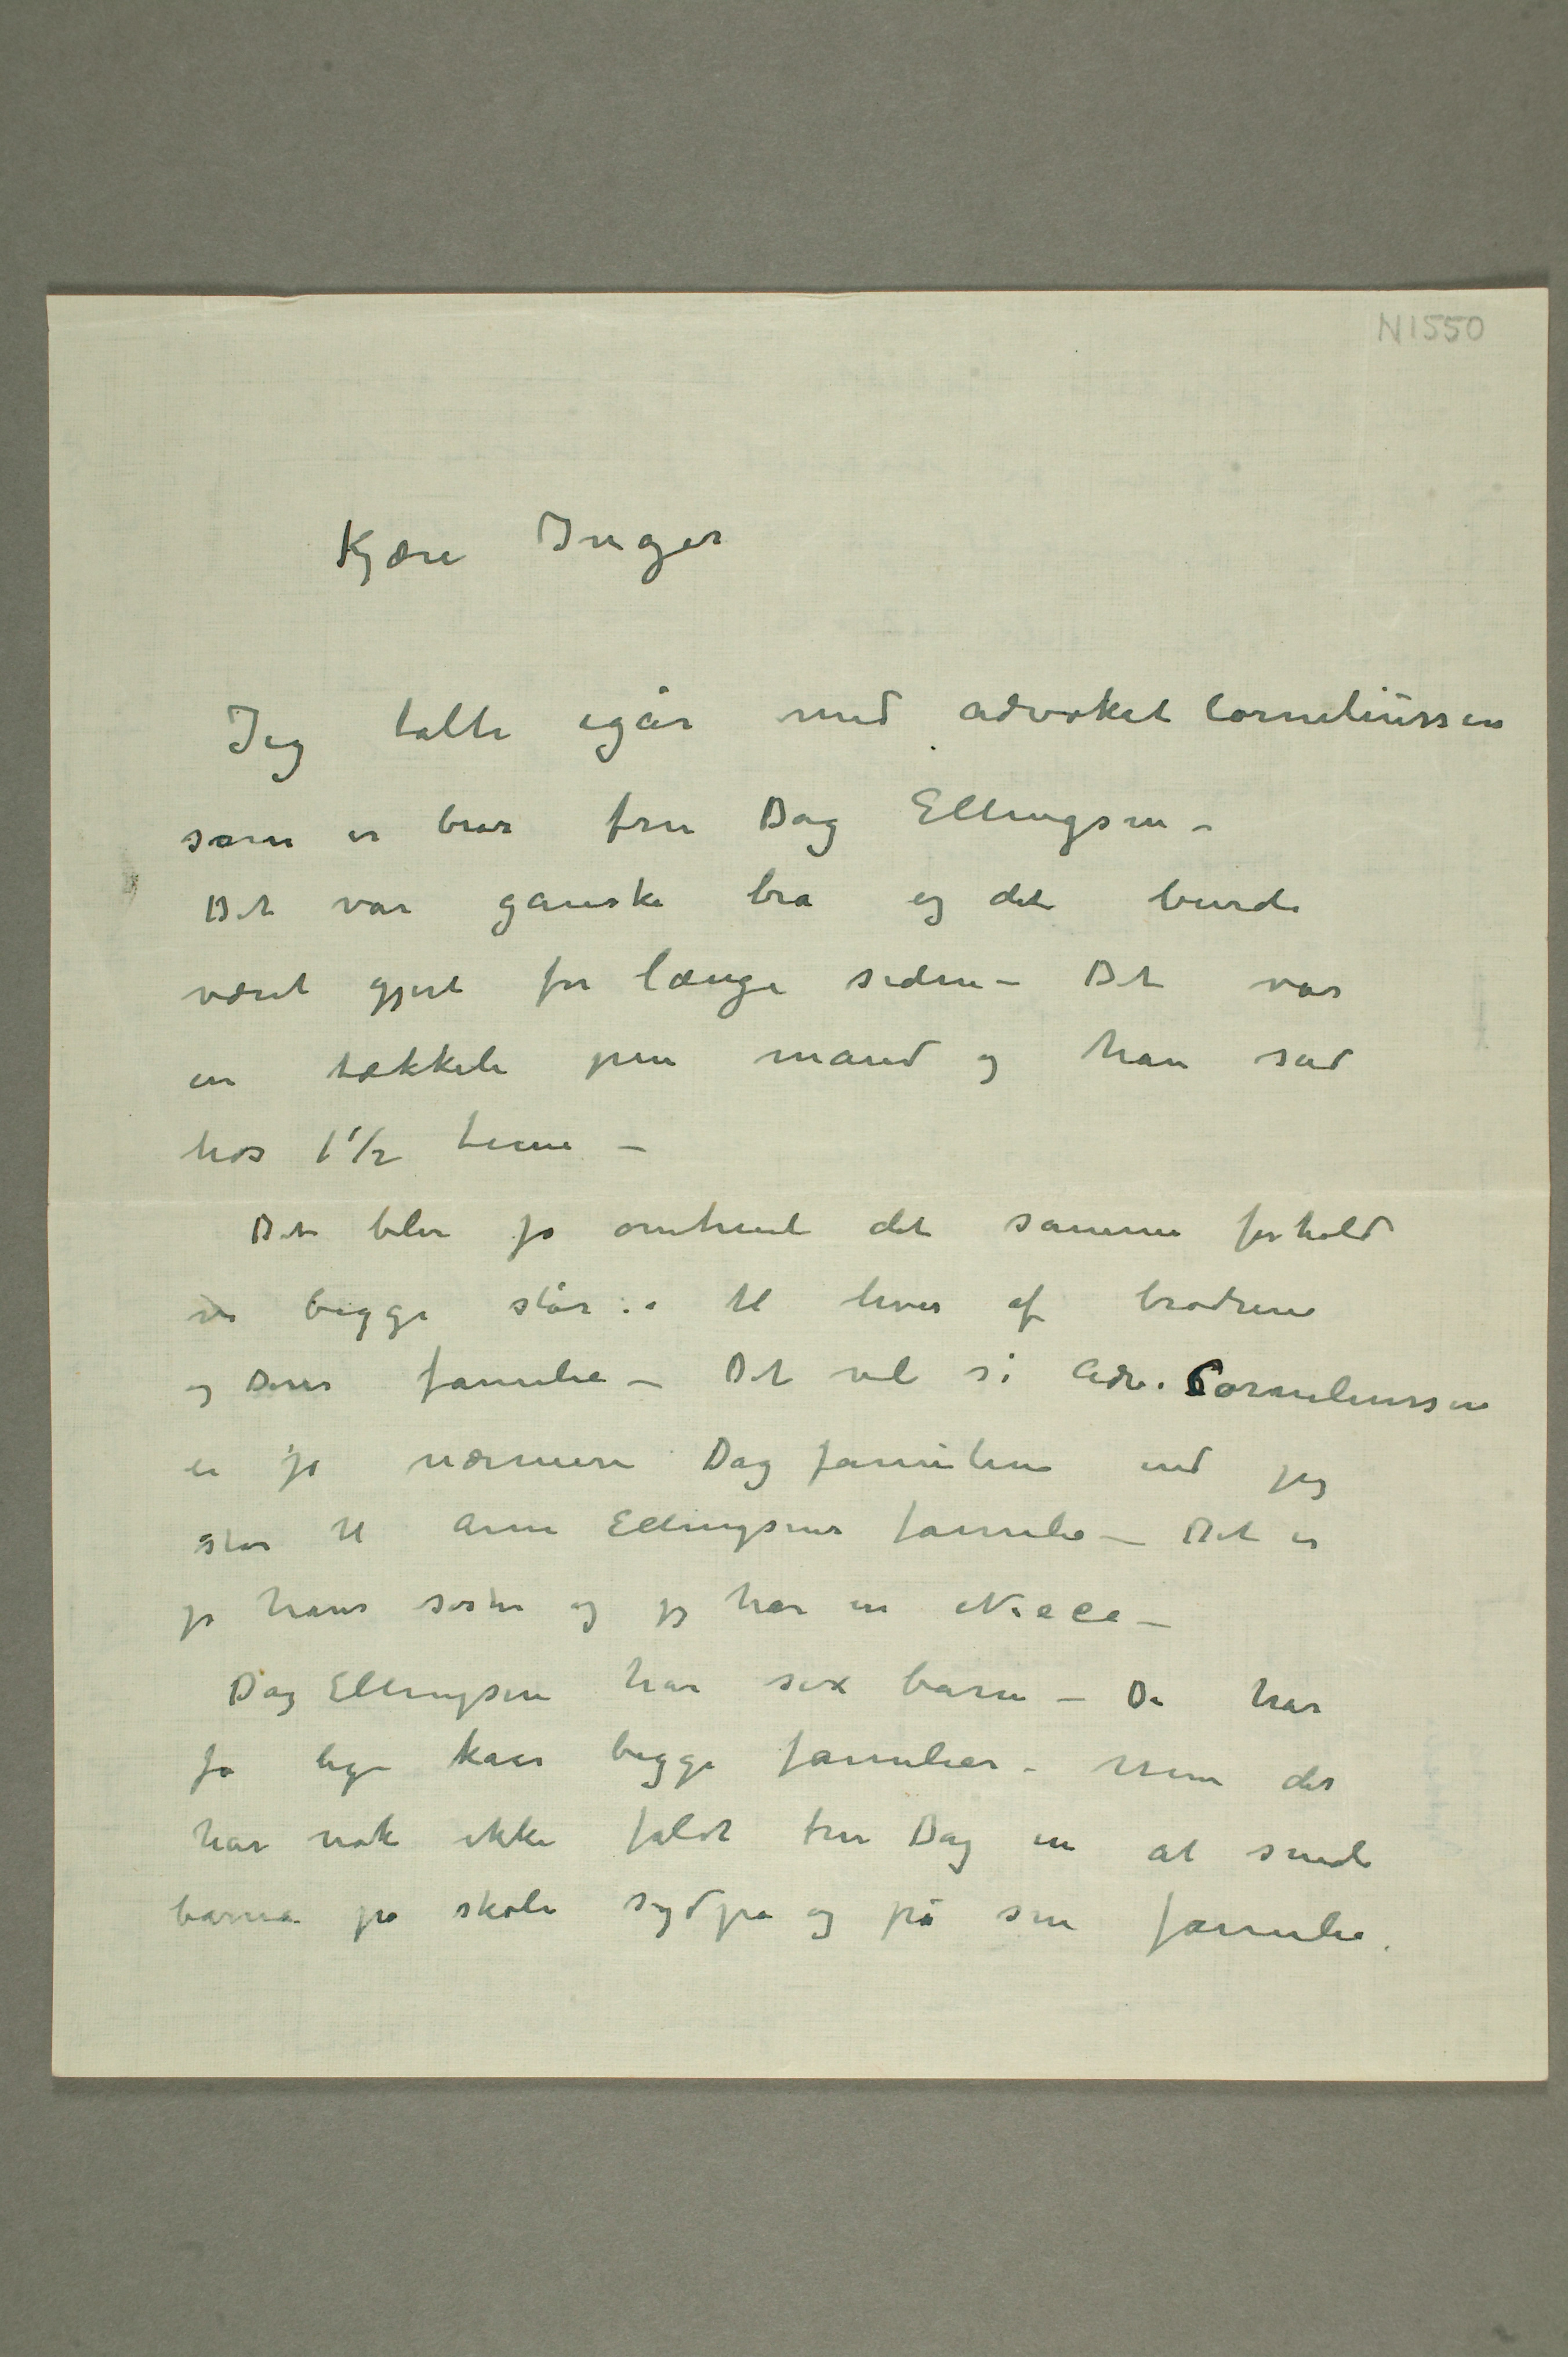 N1550
Kjære Inger
Jeg talte igår med advokat Corneliussen
som er bror fru Dag Ellingsen –
Det var ganske bra og det burde
været gjort for længe siden – Det var
en tækkeli pen mand og han sad
hos 1 1/2 time –
Det blir jo omtrent det samme forhold
vi begge står i til hver af brødrene
og Deres familie – Det vil si Adv. Corneliussen
er jo nærmere Dag familien end jeg
står til Arne Ellingsens familie – Det er
jo hans søster og jeg har en Niece –
Dag Ellingsen har sex barn – De har
jo lige kaar begge familier – Men det
har nok ikke faldt fru Dag in at sende
barna på skole sydpå og på sin familie.